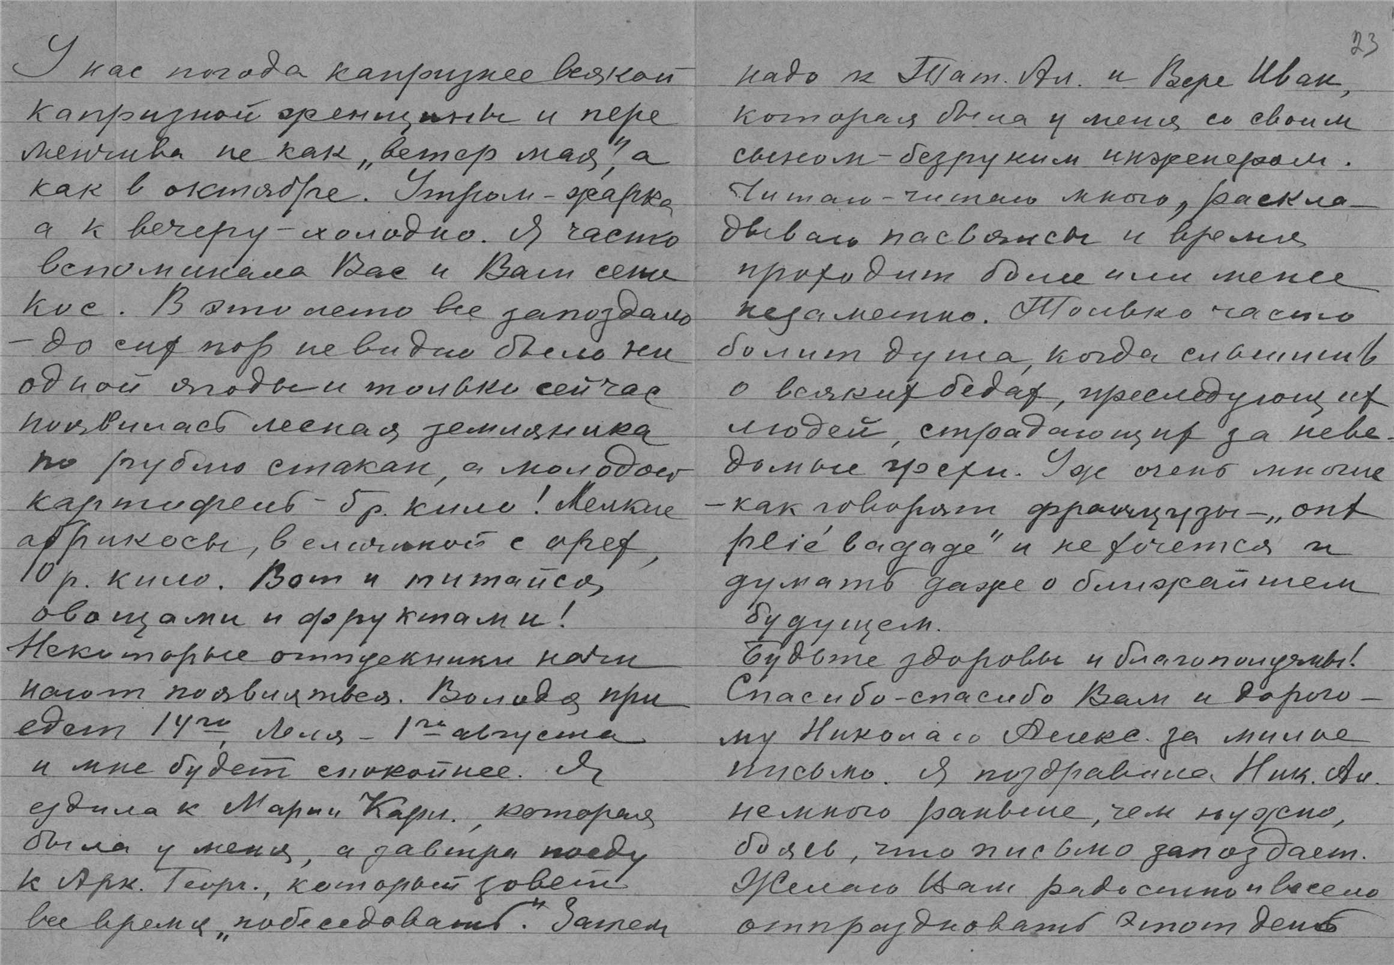 У нас погода капризнее всякой
капризной женщины и пере
менчива не как „ветер мая", а
как в октябре. Утром – жарко
а к вечеру – холодно. Я часто
вспоминала Вас и Ваш сено
кос. В это лето все запоздало
– до сих пор не видно было ни
одной ягоды и только сейчас
появилась лесная земляника
по рублю стакан, а молодой
картофель – 5 р. кило! Мелкие
абрикосы, величиной с орех,
10 р. кило. Вот и питайся
овощами и фруктами!
Некоторые отпускники начи
нают появляться. Володя при
едет 14го, Леля – 1го августа
и мне будет спокойнее. Я
ездила к Марии Карл., которая
была у меня, а завтра поеду
к Арк. Георг., который зовет
все время „побеседовать". Затем
23
надо к Тат. Ал. и Вере Иван,
которая была у меня со своим
сыном – безруким инженером.
Читаю – читаю много, раскла–
дываю пасьянсы и время
проходит более или менее
незаметно. Только часто
болит душа, когда слышишь
о всяких бедах, преследующих
людей, страдающих за неве–
домые грехи. Уже очень многие
– как говорят французы – „ont
plié bagage" и не хочется и
думать даже о ближайшем
будущем.
Будьте здоровы и благополучны!
Спасибо – спасибо Вам и дорого–
му Николаю Алекс. за милое
письмо. Я поздравила Ник. Ал.
немного раньше, чем нужно,
боясь, что письмо запоздает.
Желаю Вам радостно и весело
отпраздновать этот день